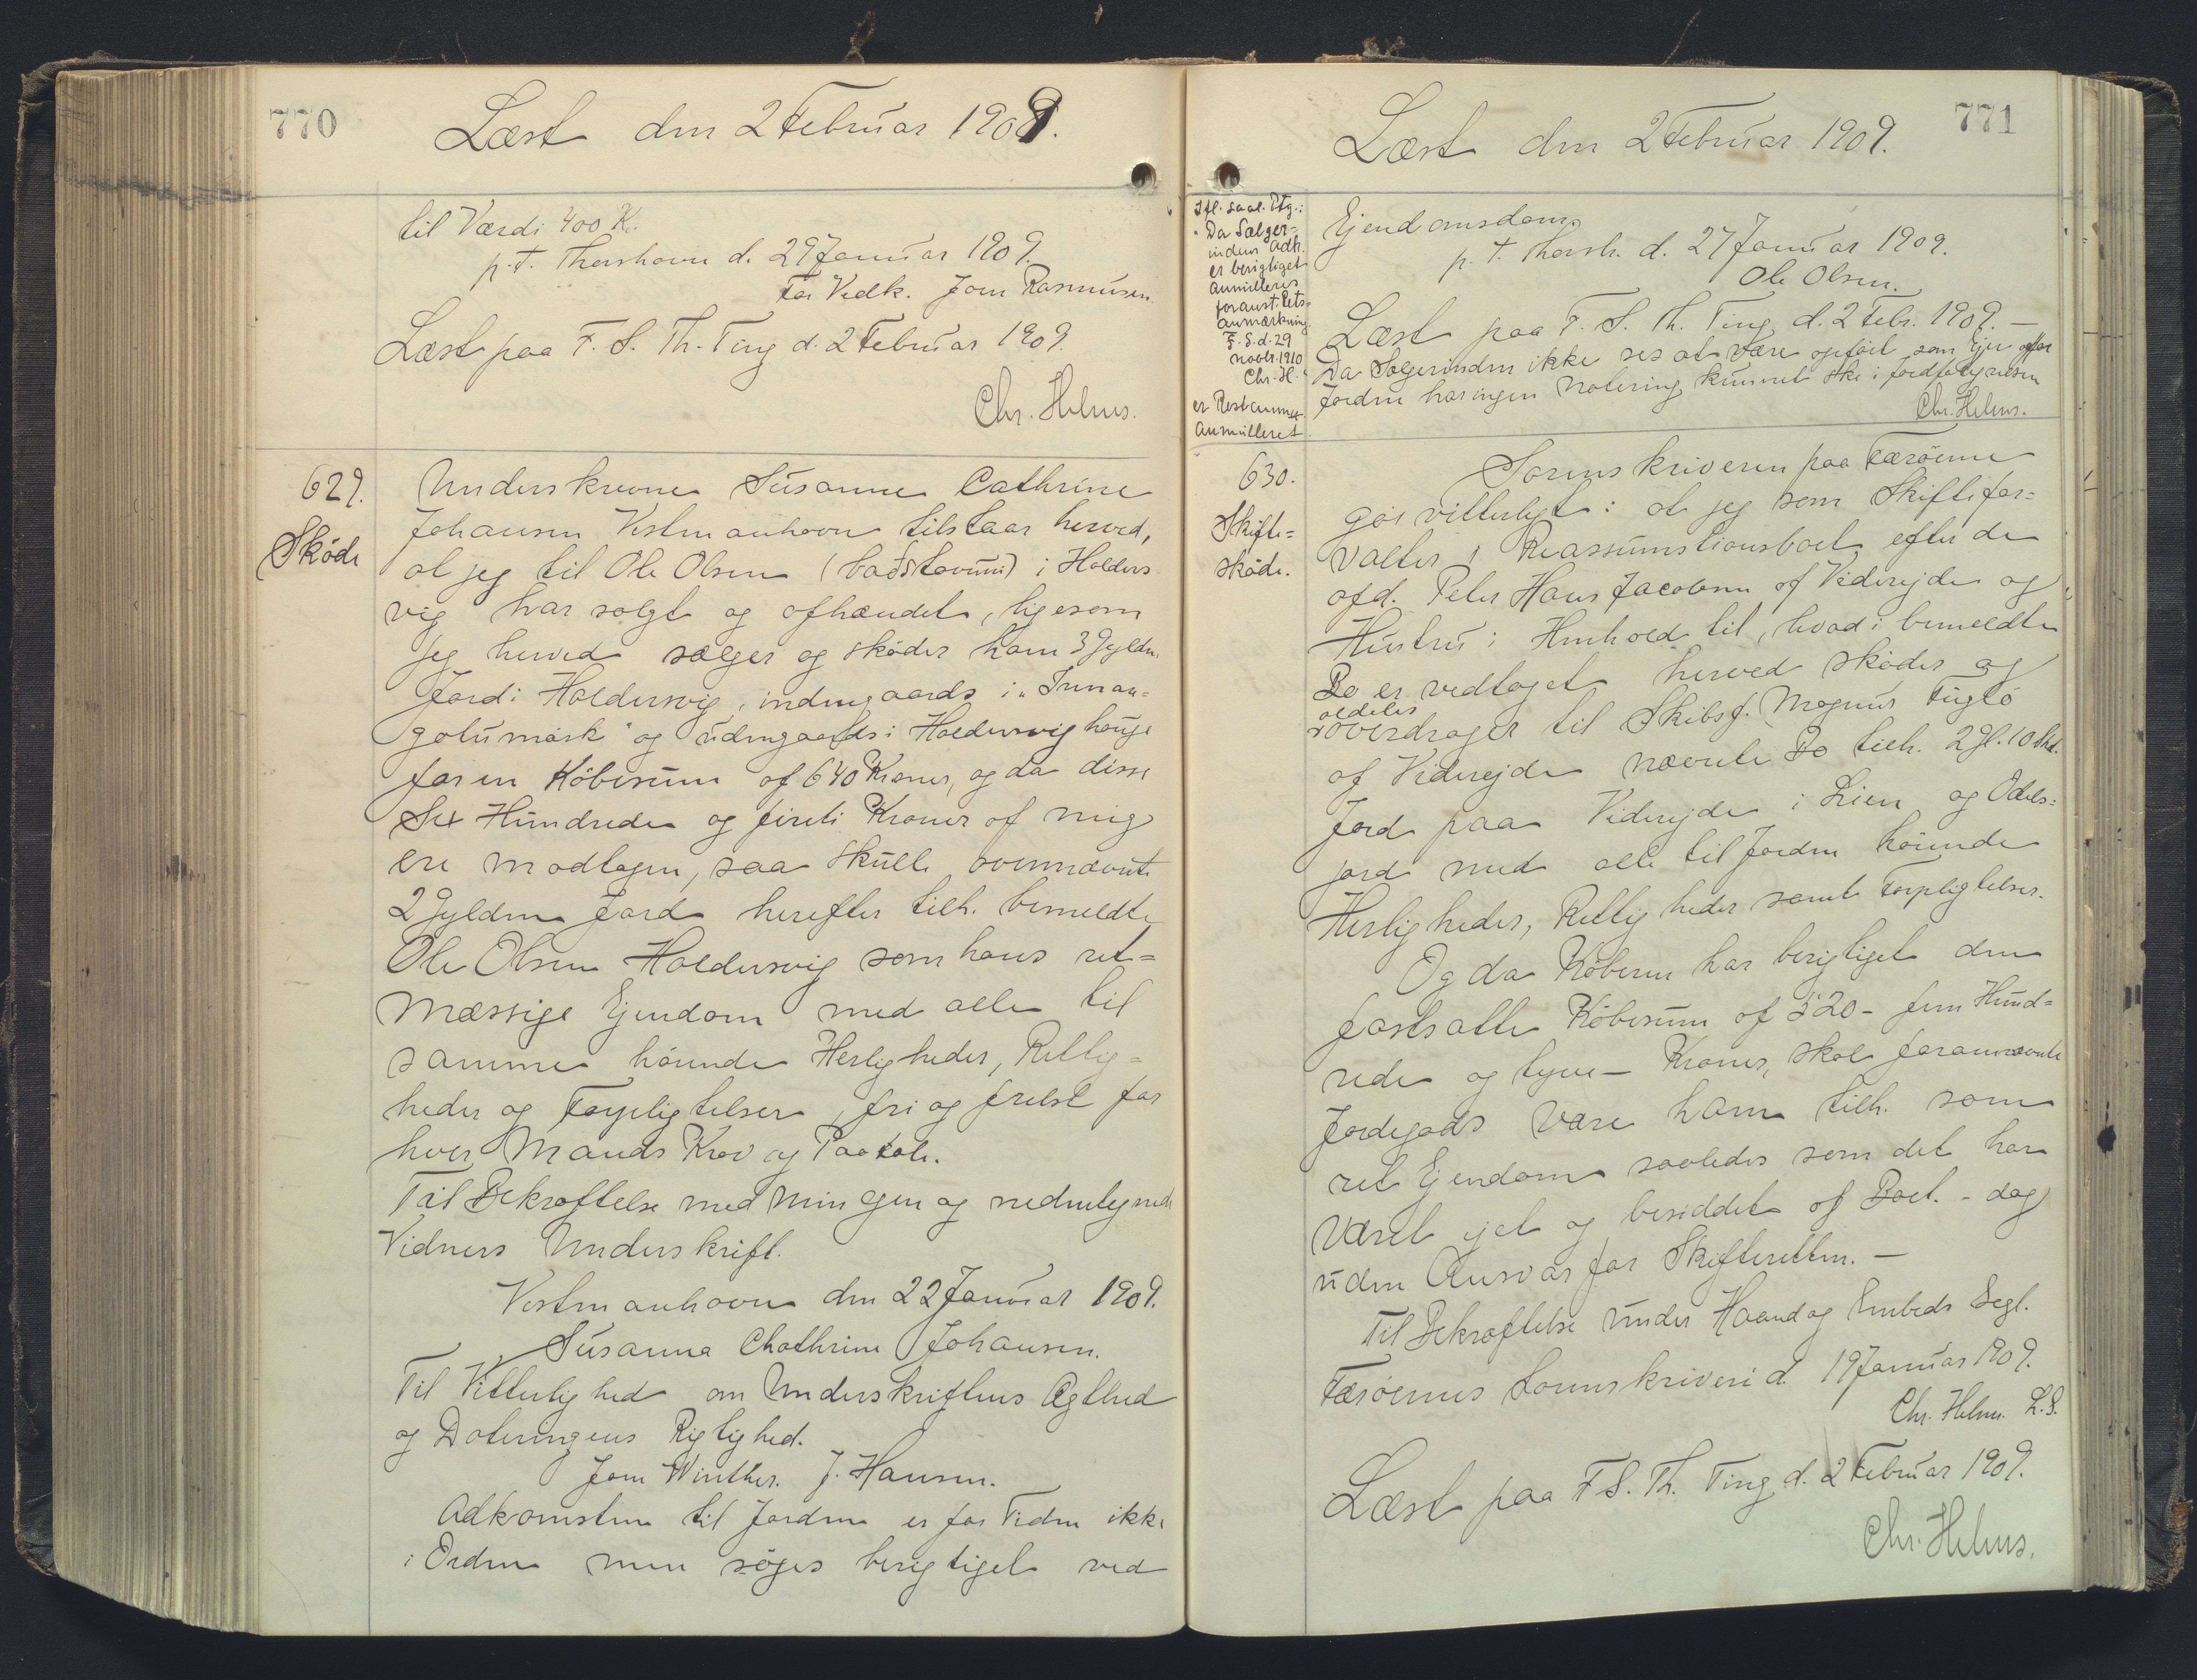 770
Læst den 2 Februar 1909.
til Værdi 400 K.
p.t. Thorshavn d. 29 Januar 1909.
For Vedk. Joen Rasmussen.
Læst paa F. S. Th. Ting d. 2 Februar 1909
Chr. Helms.
629.
Skøde
Underskrevne Susanne Cathrine
Johansen Vestmanhavn tilstaar herved,
at jeg til Ole Olsen (baðstovuni) i Halders
vig har solgt og afhændet, ligesom
jeg herved sælger og skøder ham 3 Gylden
Jord i Haldersvig, indengaards i "Innan=
gotumørk" og udengaards i Haldersvig hauge
for en Købesum af 640 Kroner, og da disse
Sex Hundrede og fireti Kroner af mig
ere modtagen, saa skulle ovennævnte
2 Gylden Jord herefter tilh. bemeldte
Ole Olsen Haldersvig som hans ret=
mæssige Ejendom med alle til
samme hørende Herligheder, Rettig=
heder og Forpligtelser, fri og frelst for
hver Mands Krav og Paatale.
Til Bekræftelse med min egen og nedentegnede
Vidners Underskrift.
Vestmanhavn den 22 Januar 1909.
Susanna Chathrine Johansen.
Til Vitterlighed om Underskriftens Ægthed
og Dateringens Rigtighed.
Joen Winther. J. Hansen.
Adkomsten til Jorden er for Tiden ikke
i Orden men søges berigtiget ved
771
Læst den 2 Februar 1909.
Ifl. saal. Ptg.:
"Da Sælger=
indens Adk.
er berigtiget
annulleres
foranst. Rets=
anmærkning.
F. S. d. 29
Novbr. 1910
Chr. H."
er Restanmn.
annulleret.
Ejendomsdom,
p. t. Thorsh. d. 27 Januar 1909.
Ole Olsen.
Læst paa F. S. Th. Ting d. 2 Febr. 1909. —
Da Sælgerinden ikke ses at være opført som Ejer af
Jorden har ingen Notering kunnet ske i Jordfortegnelsen
Chr. Helms.
630.
Skifte=
skøde.
Sorenskriveren paa Færøerne
gør vitterligt: at jeg som Skiftefor=
valter i Reassumtionsboet efter de
afd. Peter Hans Jacobsen af Viderejde og
Hustru i Henhold til, hvad i bemeldte
Bo er vedtaget herved skøder og
aldeles
overdrager til Skibsf. Magnus Fuglø
af Viderejde nævnte Bo tilh. 2 Gl. 10 Skd.
Jord paa Viderejde i Lien og Odels=
jord med alle til Jorden hørende
Herligheder, Rettigheder samt Forpligtelser.
Og da Køberen har berigtiget den
fastsatte Købesum af 520 - fem Hund=
rede og tyve - Kroner, skal forannævnte
Jordegods være ham tilh. som
ret Ejendom saaledes som det har
været ejet og besiddet af Boet. - dog
uden Ansvar for Skifteretten. —
Til Bekræftelse under Haand og Embeds Segl.
Færøernes Sorenskriveri d. 19 Januar 1909.
Chr. Helms. L.S.
Læst paa F. S. Th. Ting d. 2 Februar 1909.
Chr. Helms.